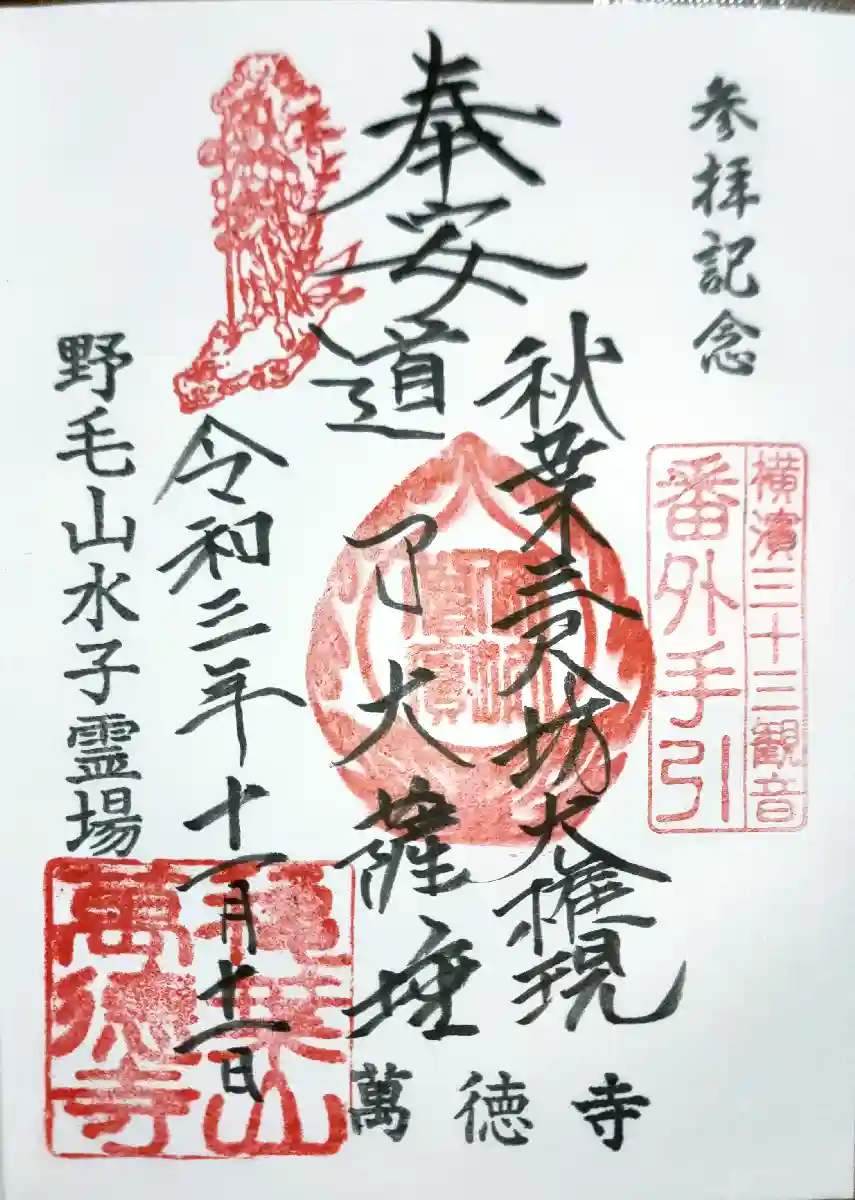 参拝記念
横濱三十三観音
番外手引
奉安
秋葉三尺坊大権現
道了大薩埵
令和三年十一月十一日
野毛山水子霊場
萬徳寺
萬徳寺